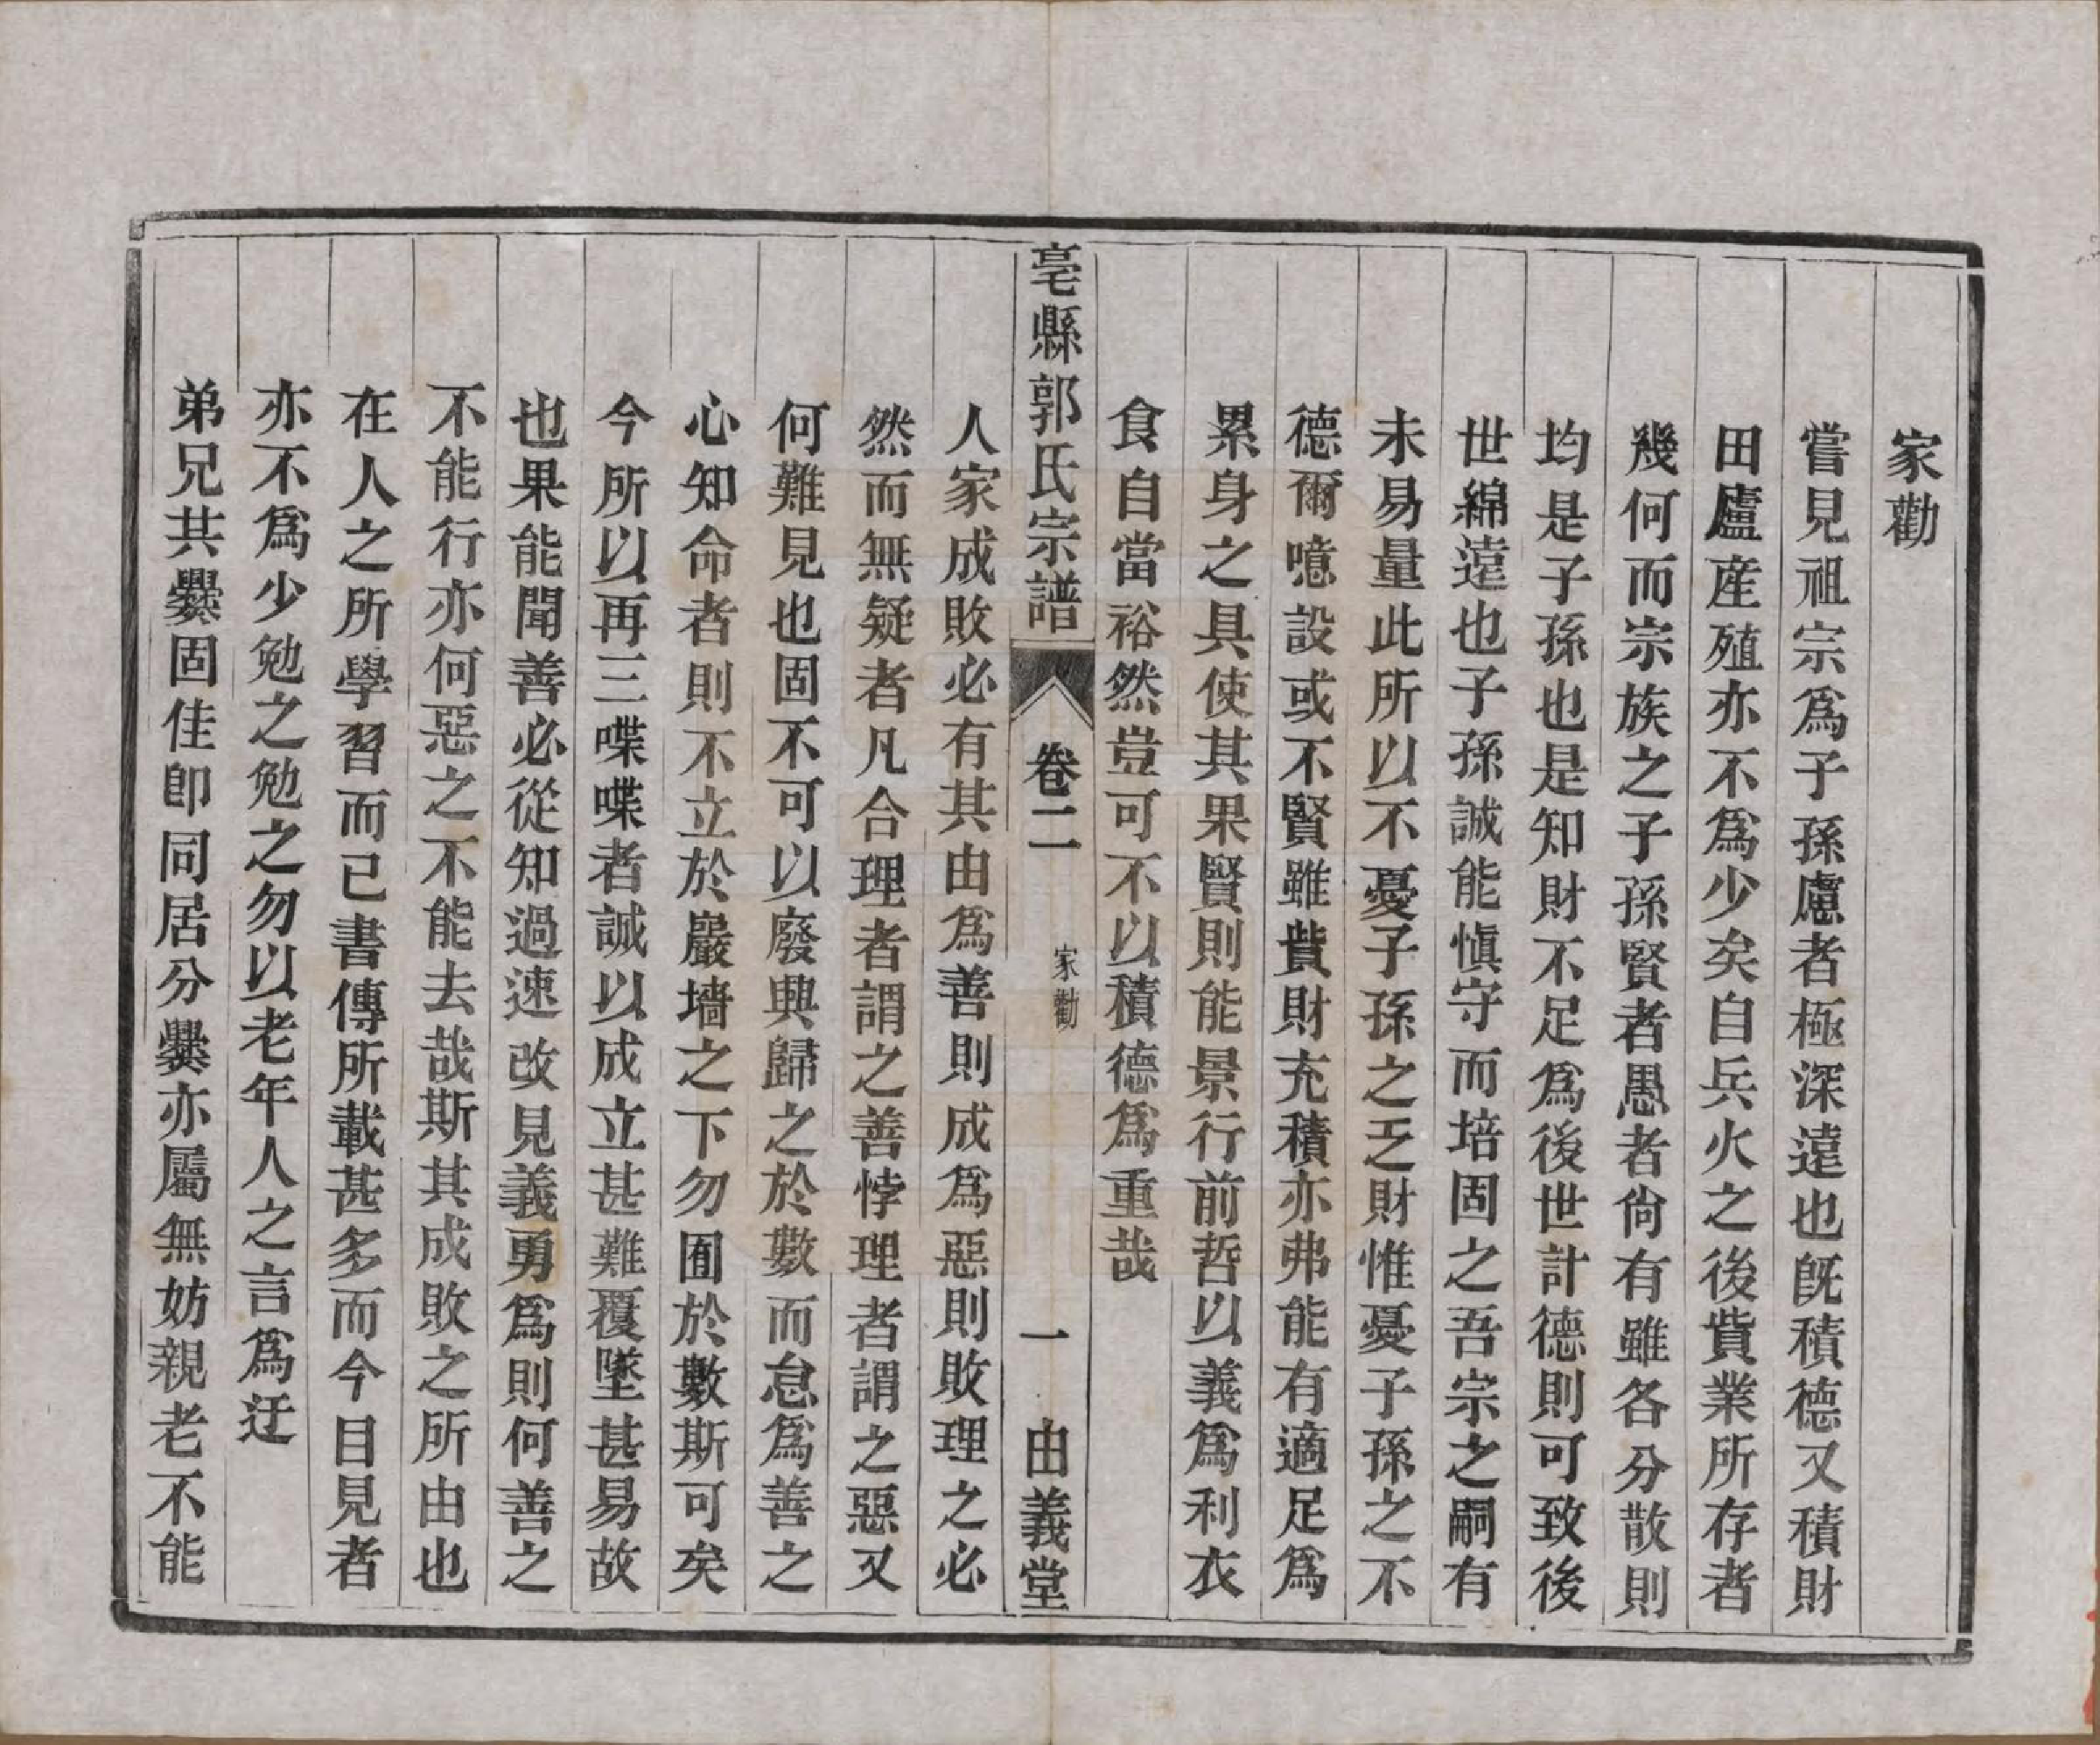 家勸
嘗見祖宗爲子孫慮者極深遠也既積德又積財
田廬産殖亦不爲少矣自兵火之後貲業所存者
幾何而宗族之子孫賢者愚者尙有雖各分散則
均是子孫也是知財不足爲後世計德則可致後
世綿遠也子孫誠能愼守而培固之吾宗之嗣有
未易量此所以不憂子孫之乏財惟憂子孫之不
德爾噫設或不賢雖貲財充積亦弗能有適足爲
累身之具使其果賢則能景行前哲以義爲利衣
食自當裕然豈可不以積德爲重哉
亳縣郭氏宗譜
卷二
家勸
一
由義堂
人家成敗必有其由爲善則成爲惡則敗理之必
然而無疑者凡合理者謂之善悖理者謂之惡又
何難見也固不可以廢興歸之於數而怠爲善之
心知命者則不立於嚴墻之下勿囿於數斯可矣
今所以再三喋喋者誠以成立甚難覆墜甚易故
也果能聞善必從知過速改見義勇爲則何善之
不能行亦何惡之不能去哉斯其成敗之所由也
在人之所學習而已書傳所載甚多而今目見者
亦不爲少勉之勉之勿以老年人之言爲迂
弟兄共爨固佳卽同居分爨亦屬無妨親老不能